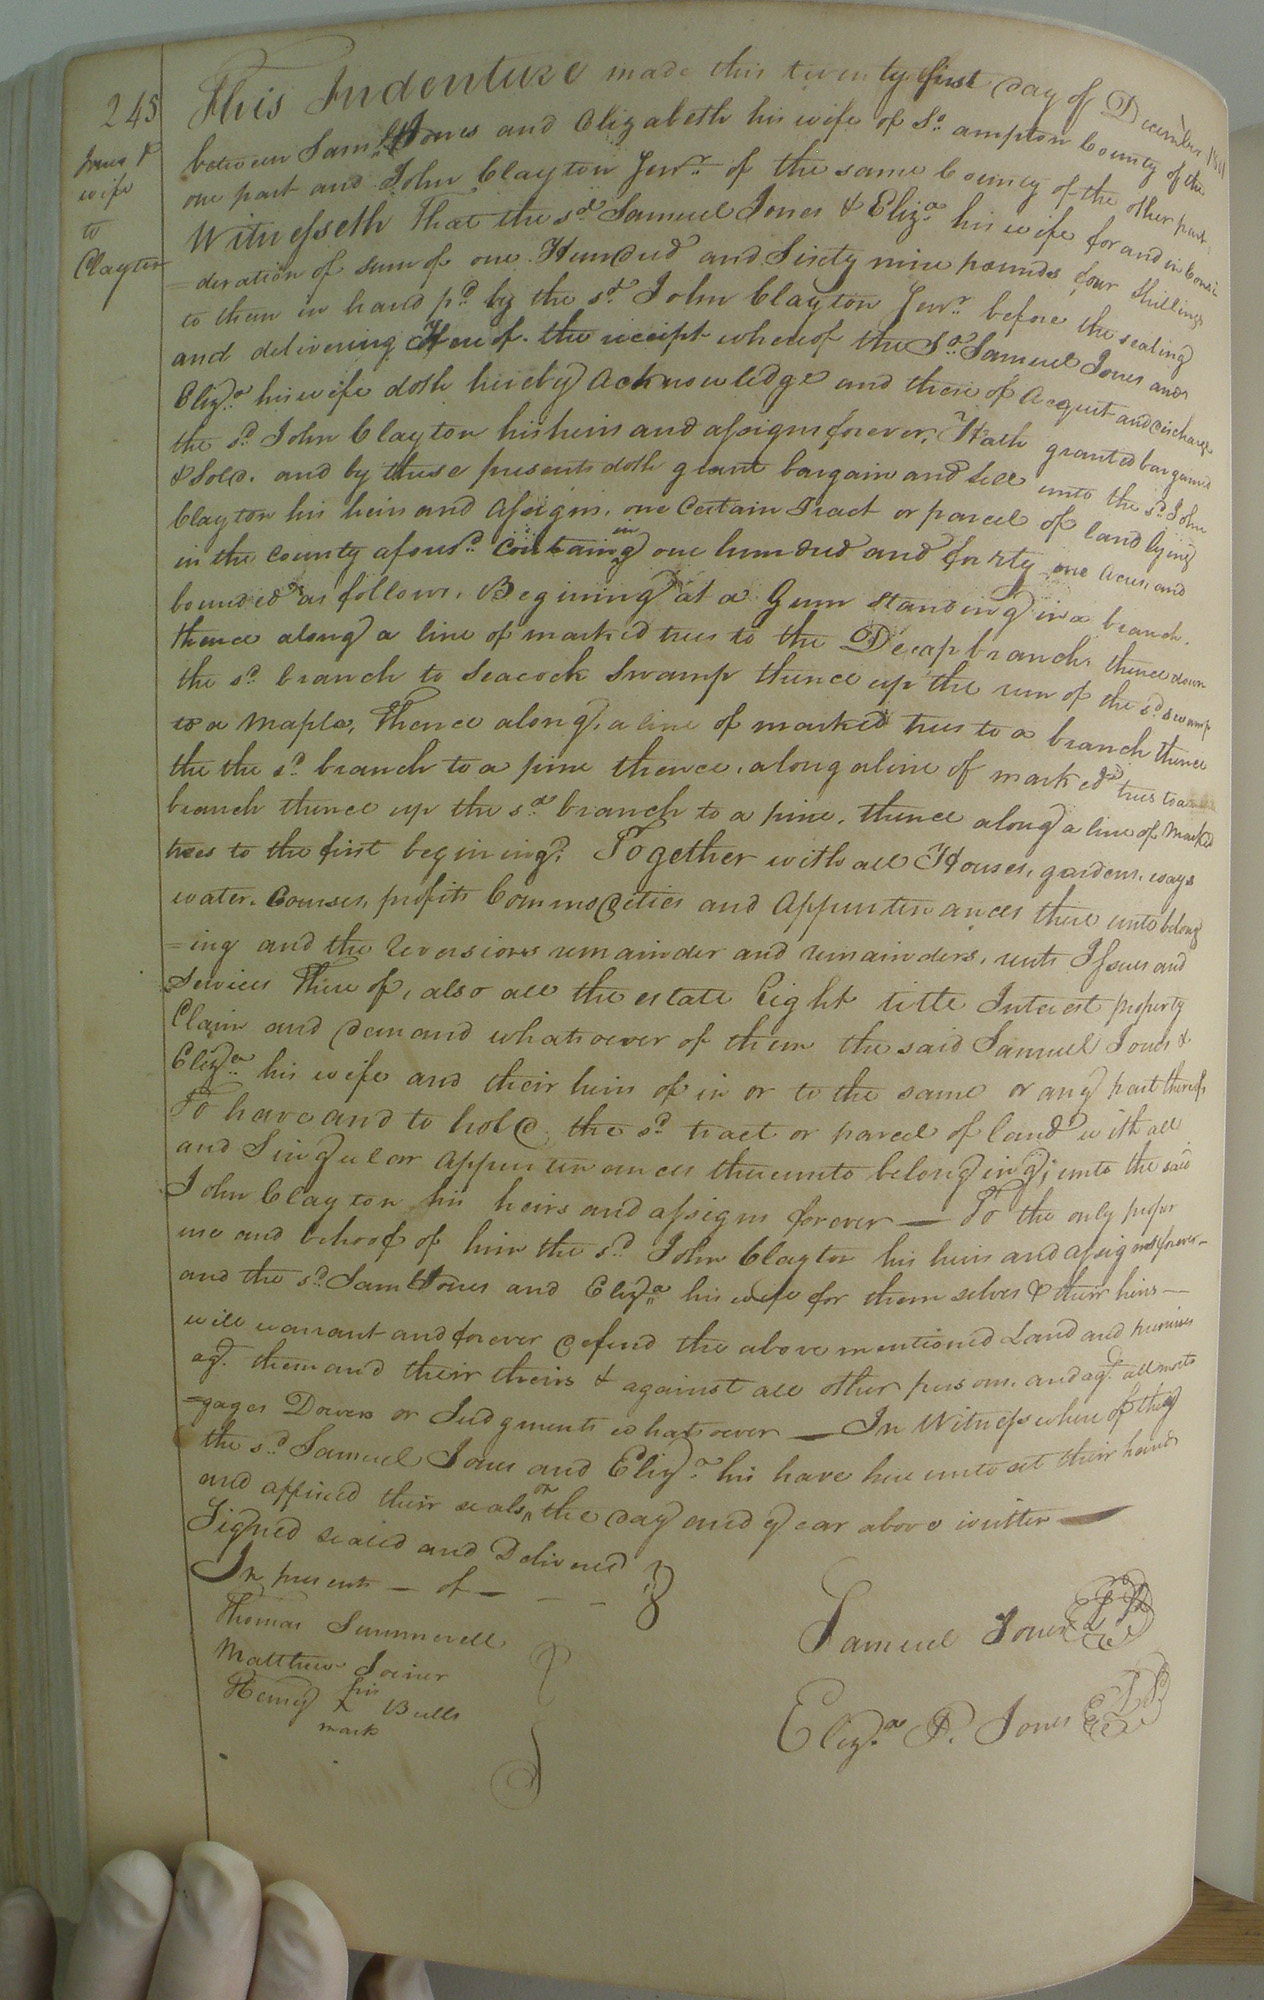 245
Jones &
wife
to
Clayton
This Indenture made this twenty first day of December 1811
between Saml Jones and Elizabeth his wife of So ampton County of the
one part and John Clayton Junr. of the same County of the other part
Witnesseth That the sd Samuel Jones & Eliza his wife for and in Consi
=deration of sum of one Hundred and Sixty nine pounds four Shillings
to them in hand pd by the sd John Clayton Junr. before the sealing
and delivering Hereof. the receipt whereof the Sd Samuel Jones and
Eliza his wife doth hereby Acknowledge and thereof Acquit and discharge
the sd John Clayton his heirs and assigns forever, Hath granted bargained
& Sold. and by these presents doth grant bargain and sell unto the sd John
Clayton his heirs and Assigns, one Certain Tract or parcel of land lying
in the County aforesd. Containing one hundred and forty one Acres, and
bounded as follows, Begining at a Gum standing in a branch.
thence along a line of marked trees to the Deap branch, thence down
the sd. branch to Seacock Swamp thence up the run of the sd swamp
to a Maple, Thence along, a line of marked trees to a branch thence
the the sd. branch to a pine thence, along a line of marked trees to a
branch thence up the sd branch to a pine, thence along a line of Marked
trees to the first begining; Together with all Houses, gardens, ways
water. Courses, profits Commodities and Appurtenances there unto belong
=ing and the Reversions remainder and remainders, rents Issues and
Services There of, also all the estate Right title Interest property
Claim and demand whatsoever of them the said Samuel Jones &
Eliza his wife and their heirs of in or to the same or any part thereof
To have and to hold the sd. tract or parcel of land with all
and Singular appurtenances thereunto belonging; unto the said
John Clayton his heirs and assigns forever — To the only proper
use and behoof of him the sd. John Clayton his heirs and assigns forever —
and the sd. Saml Jones and Eliza his wife for them selves & their heirs —
will warrant and forever defend the above mentioned Land and premises
agt. them and their theirs & against all other persons. and agt. all mort
=gages Dowers or Judgments whatsoever — In Witness whereof they
the sd Samuel Jones and Eliza his have hereunto set their hands
and affixed their seals on the day and year above written —
Signed sealed and Delivered
In presents — of —
Thomas Summerell
Matthew Joiner
Henry his x mark Bulls
Samuel Jones LS
Eliza P. Jones LS